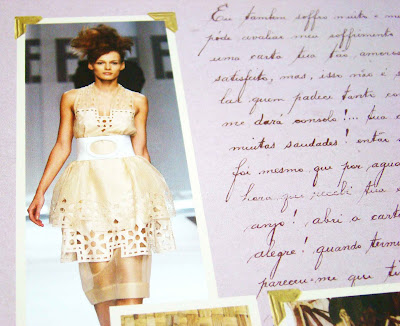 Eu tambem soffro muito e m
póde avaliar meu soffrimento
uma carta tua tão amorosa
satisfeito, mas, isso não é s
lar quem padece tanto com
me dará consolo!... tua c
muitas saudades! entar
foi mesmo que por agua
hora que recebi tua c
anjo! abri a carta
alegre! quando termi
pareceu-me que ti